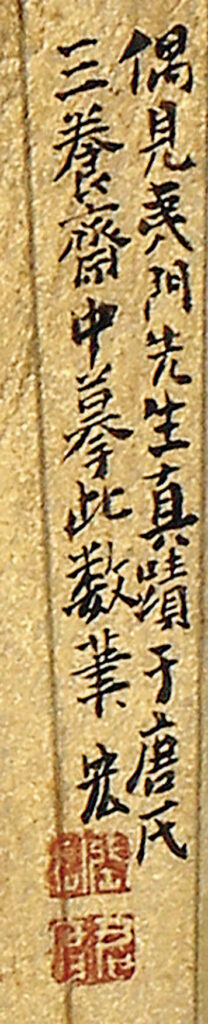 偶見夷門先生真蹟于唐氏
三養齋中摹此数筆 宏